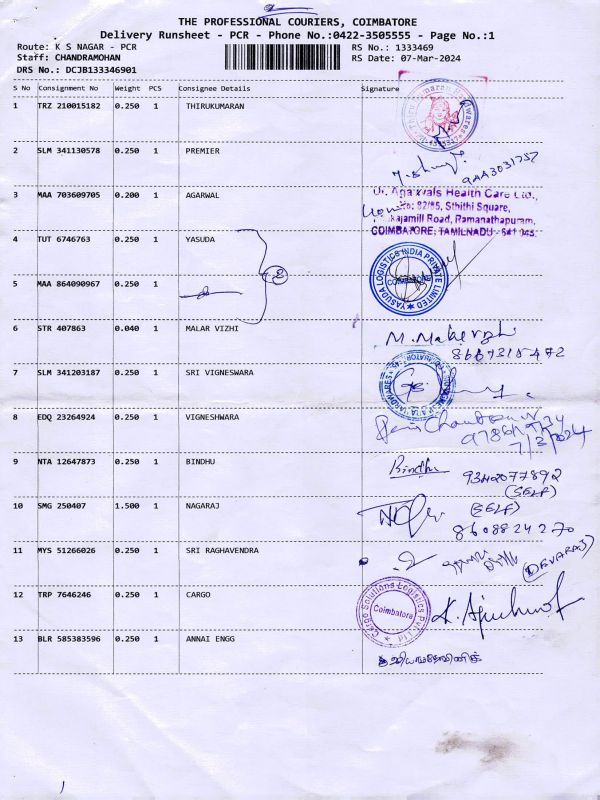 THE PROFESSIONAL COURIERS, COIMBATORE
Delivery Runsheet - PCR - Phone No.:0422-3505555 - Page No.:1
Route: K S NAGAR - PCR RS No.: 1333469
Staff: CHANDRAMOHAN RS Date: 07-Mar-2024
DRS No.: DCJB133346901
S No Consignment No Weight PCS Consignee Details Signature
1 TRZ 210015182 0.250 1 THIRUKUMARAN
2 SLM 341130578 0.250 1 PREMIER
3 MAA 703609705 0.200 1 AGARWAL
Dr. Agarwals Health Care Ltd.,
No: 82/85, Sthithi Square,
Road, Ramanathapuram,
COIMBATORE, TAMILNADU - 641 045.
4 TUT 6746763 0.250 1 YASUDA
2
YASUDA LOGISTICS INDIA PRIVATE LIMITED
COIMBATORE
5 MAA 864090967 0.250 1
6 STR 407863 0.040 1 MALAR VIZHI
7 SLM 341203187 0.250 1 SRI VIGNESWARA
8 EDQ 23264924 0.250 1 VIGNESHWARA
7/3/2024
9 NTA 12647873 0.250 1 BINDHU Bindhu
9342077892
(SELF)
10 SMG 250407 1.500 1 NAGARAJ
(SELF)
8608824270
11 MYS 51266026 0.250 1 SRI RAGHAVENDRA
(DEVARAJ)
12 TRP 7646246 0.250 1 CARGO
Cargo Solutions Logistics Pvt Ltd
Coimbatore
13 BLR 585383596 0.250 1 ANNAI ENGG